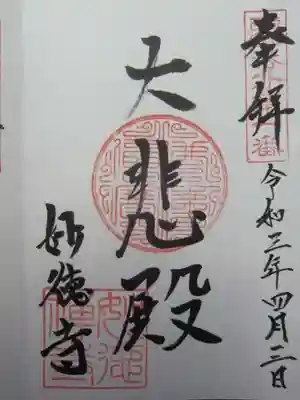 奉拜
令和三年四月三日
大悲殿
妙徳寺